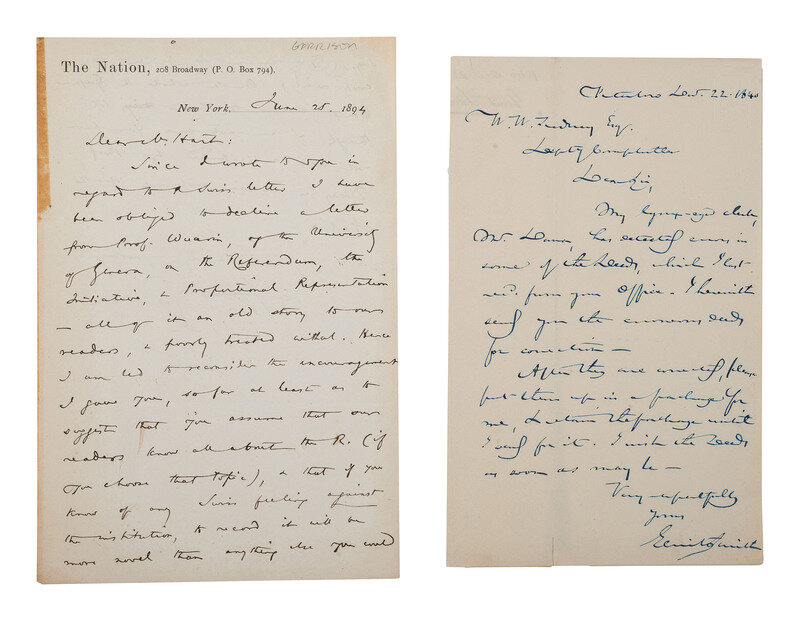 GARRISON
The Nation, 208 Broadway (P. O. Box 794).
New York, June 25. 1894
Dear Mr. Hart:
Since I wrote to you in
regard to a Swiss letter I have
been obliged to decline a letter
from Prof. Wuarin, of the University
of Geneva, on the Referendum, the
Initiative, & Proportional Representation
— all of it an old story to our
readers, & poorly treated withal. Hence
I am led to reconsider the encouragement
I gave you, so far at least as to
suggest that you assume that our
readers know all about the R. (if
you choose that topic), & that if you
know of any Swiss feeling against
the institution, to record it will be
more novel than anything else you could
Peterboro Dec. 22. 1840
W. W. Esq.
Deputy Comptroller
Dear Sir,
My lynx-eyed clerk,
Mr. has detected errors in
some of the Deeds, which I last
recd. from your Office. I herewith
send you the erroneous deeds
for correction —
After they are corrected, please
put them up in a package for
me, & retain the package until
I send for it. I wish the Deeds
as soon as may be —
Very respectfully
yours
Gerrit Smith